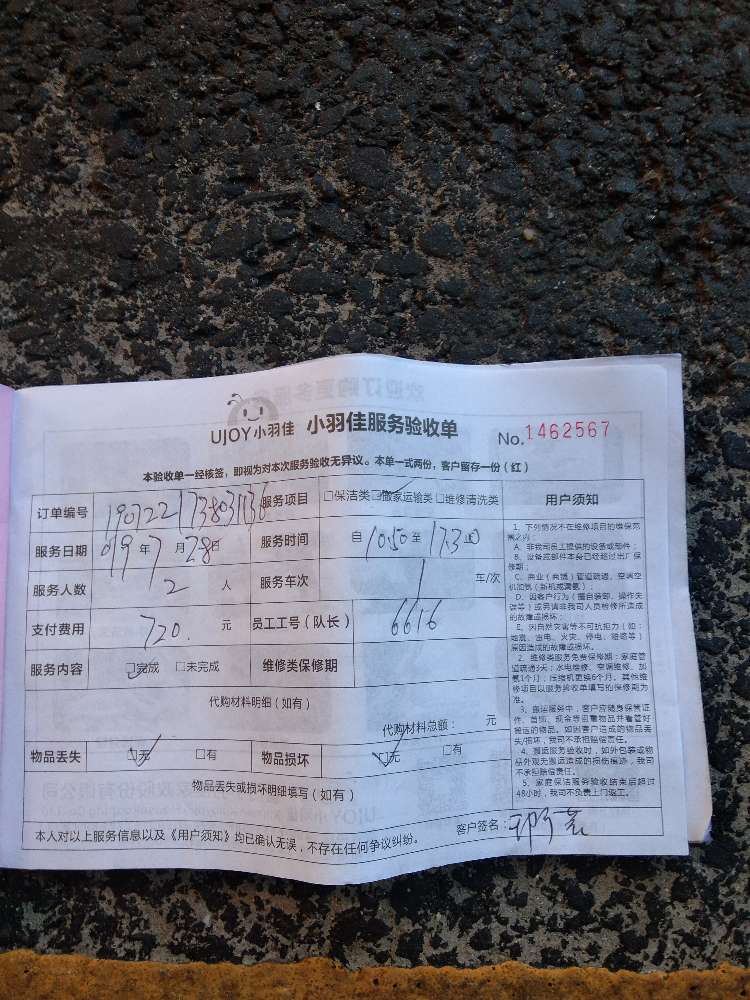 UJOY小羽佳 小羽佳服务验收单 No.1462567
本验收单一经核签，即视为对本次服务验收无异议。本单一式两份，客户留存一份（红）
订单编号 1907221738031136 服务项目 □保洁类 □搬家运输类 □维修清洗类
服务日期 019年7月28日 服务时间 自10:50至17:30止
服务人数 2人 服务车次 1车/次
支付费用 720.元 员工工号（队长） 6616
服务内容 □完成 □未完成 维修类保修期
代购材料明细（如有）
代购材料总额： 元
物品丢失 □无 □有 物品损坏 □无 □有
物品丢失或损坏明细填写（如有）
本人对以上服务信息以及《用户须知》均已确认无误，不存在任何争议纠纷。 客户签名：
用户须知
1、下列情况不在维修项目的维保范
围之内
A、非我司员工提供的设备或部件；
B、设备或部件本身已经超过出厂保
修期；
C、商业（商铺）管道疏通、空调空
机加氨（新机或满氨）；
D、因客户行为（擅自装卸、操作失
误等）或另请非我司人员检修所造成
的故障或损坏；
E、因自然灾害等不可抗拒力（如：
地震、雷电、火灾、停电、赔偿等）
原因造成的故障或损坏。
2、维修类服务免费保修期：家庭管
道疏通3天；水电维修、空调维修、加
氨1个月；压缩机更换6个月。其他维
修项目以服务验收单填写的保修期为
准。
3、搬运服务中，客户应随身保管证
件、首饰、现金等贵重物品并看管好
搬运的物品。如因客户造成的物品丢
失/损坏，我司不承担赔偿责任。
4、搬运服务验收时，如外包装或物
品外观无搬运造成的损伤痕迹，我司
不承担赔偿责任。
5、家庭保洁服务验收结束后超过
48小时，我司不负责上门返工。